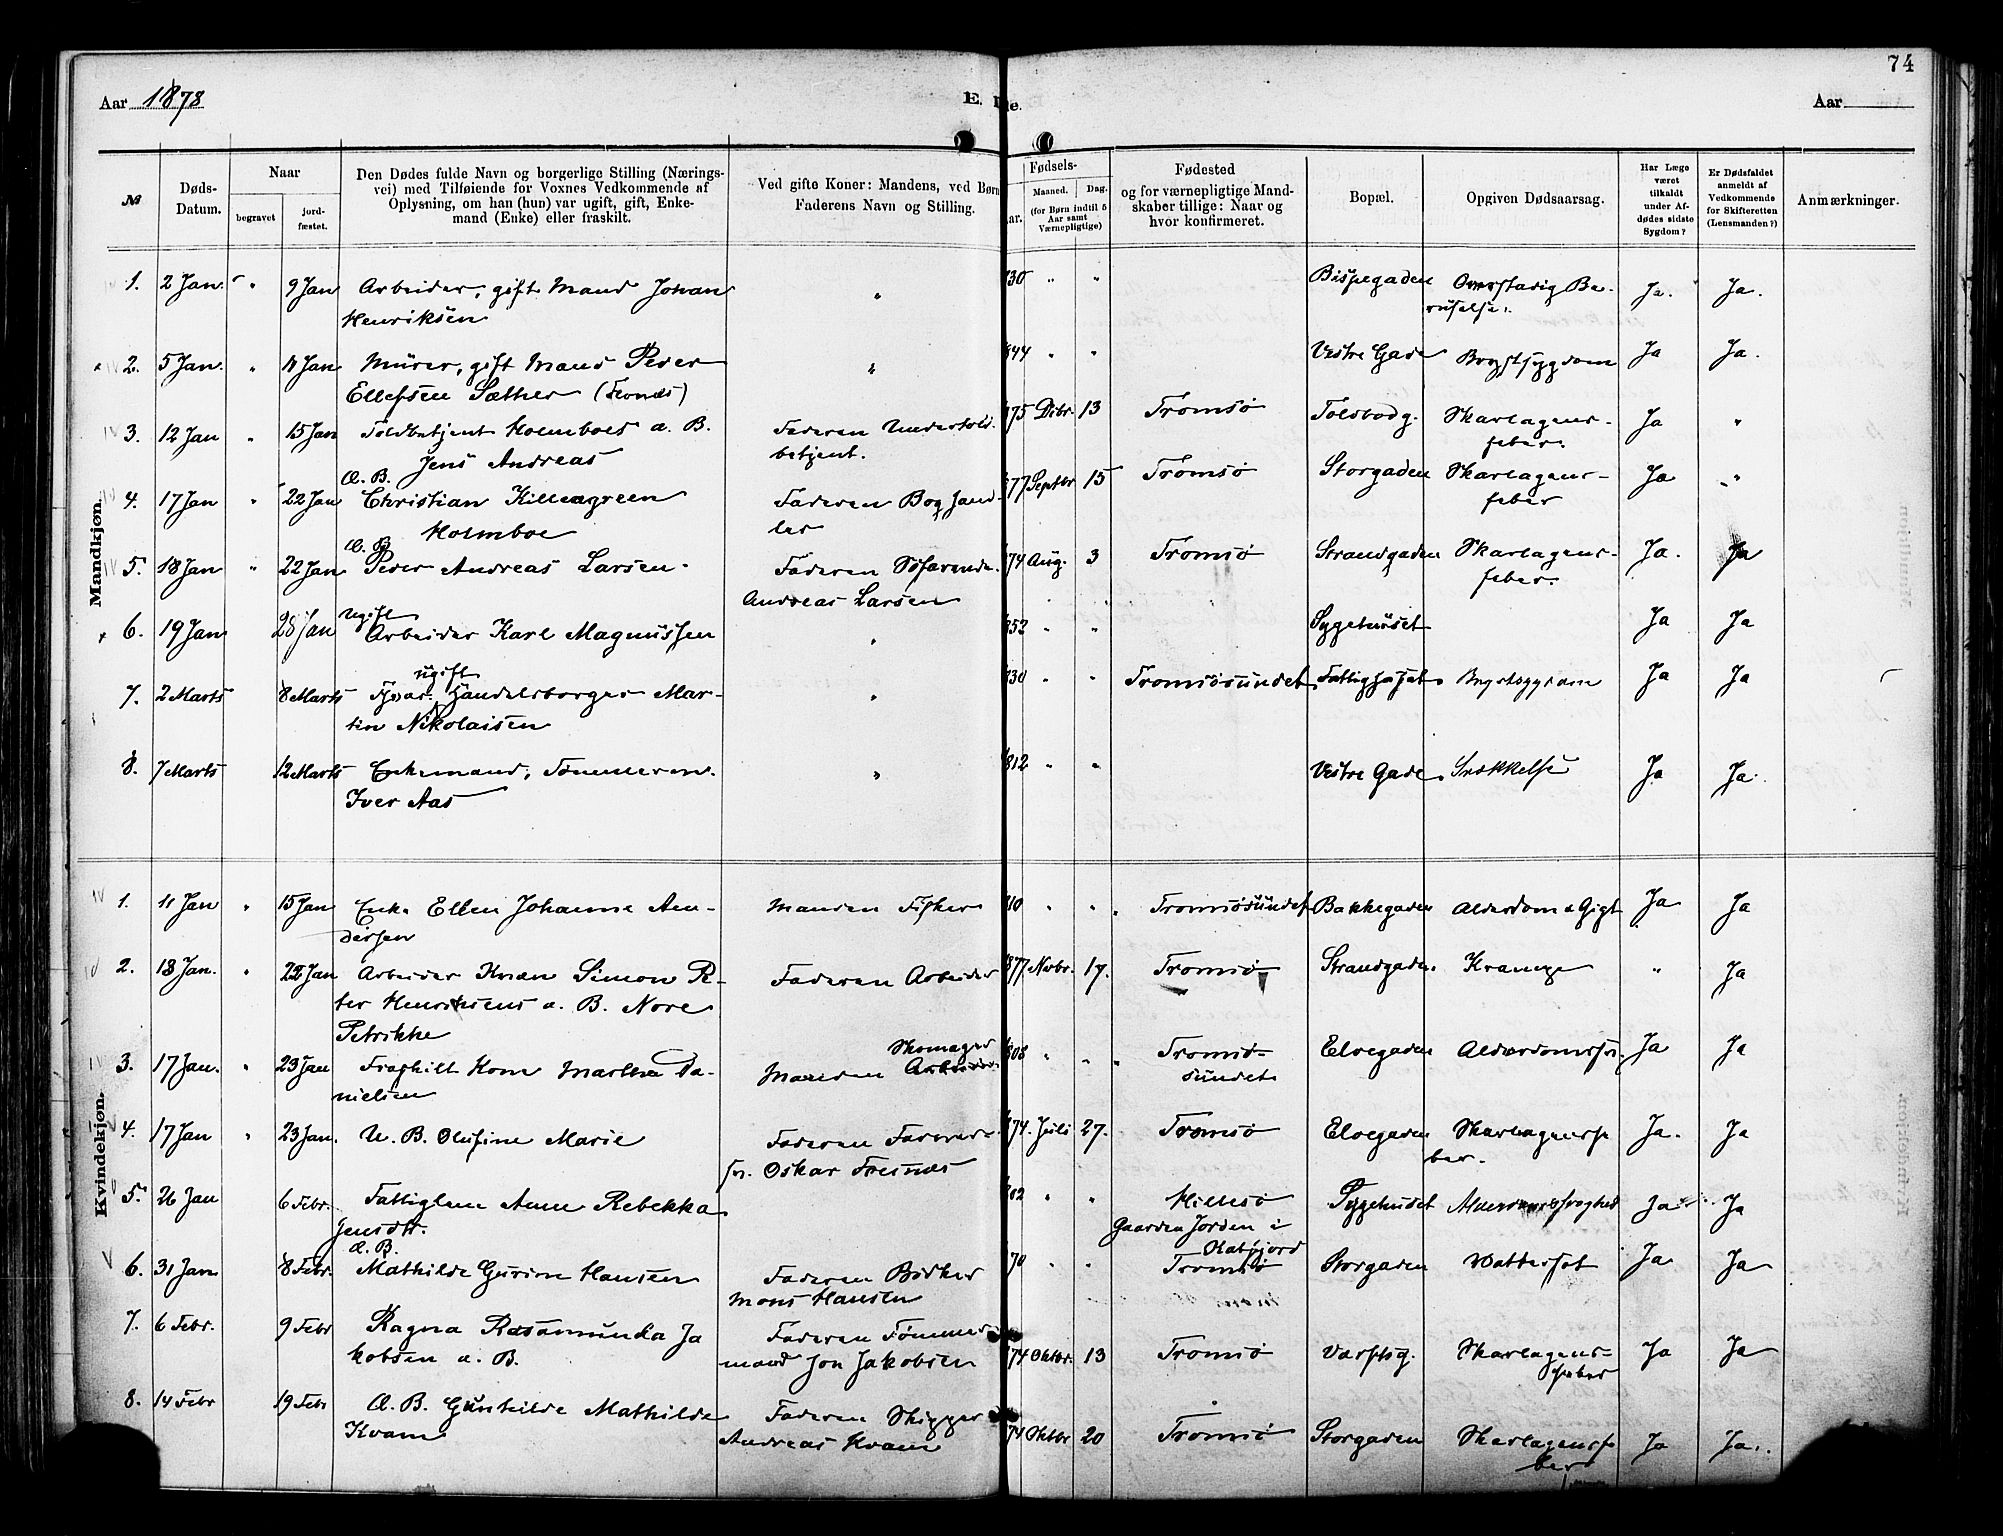 74
Aar 1878
E. D
de.
Aar
№
Døds-
Datum.
Naar
begravet
jord-
fæstet.
Den Dødes fulde Navn og borgerlige Stilling (Nærings-
vei) med Tilføiende for Voxnes Vedkommende af
Oplysning, om han (hun) var ugift, gift, Enke-
mand (Enke) eller fraskilt.
Ved gifte Koner: Mandens, ved Børn
Faderens Navn og Stilling.
Fødsels-
ar.
Maaned. Dag.
(for Børn indtil 5
Aar samt
Værnepligtige)
Fødested
og for værnepligtige Mand-
skaber tillige: Naar og
hvor konfirmeret.
Bopæl.
Opgiven Dødsaarsag.
Har Læge
været
tilkaldt
under Af-
dødes sidste
Sygdom?
Er Dødsfaldet
anmeldt af
Vedkommende
for Skifteretten
(Lensmanden?)
Anmærkninger.
Mandkjøn.
1. 2 Jan. " 9 Jan Arbeider, gift Mand Johan " 830 " " Bispegaden Overstadig Be- Ja. Ja.
Henriksen ruselse.
2. 5 Jan. " 11 Jan Murer, gift Mand Peder " 844 " " Vestre Gade Brystsygdom Ja Ja.
Ellefsen Sæther
3. 12 Jan " 15 Jan Toldbetjent Holmboes æ. B. Faderen Undertold- 875 Dcbr. 13 Tromsø Tolbodg. Skarlagens- Ja "
Jens Andreas betjent. feber.
Æ. B.
4. 17 Jan " 22 Jan Christian Killengreen Faderen Boghand- 877 Septbr 15 Tromsø Storgaden Skarlagens- Ja "
Holmboe ler feber
Æ. B.
5. 18 Jan " 22 Jan Peder Andreas Larsen. Faderen Søfarende 874 Aug. 3 Tromsø Strandgaden Skarlagens- Ja. Ja
Andreas Larsen feber.
ugift
6. 19 Jan 28 Jan Arbeider Karl Magnussen " 852 " " Sygehuset Ja Ja
ugift
7. 2 Marts 8 Marts Handelsborger Mar- " 830 " " Tromsøsundet Brystsygdom Ja Ja
tin Nikolaisen
8. 7 Marts 12 Marts Enkemand, Tømmerm. " 812 " " Vestre Gade. Snekkelse Ja Ja.
Iver Aas
Kvindekjøn.
1. 11 Jan " 15 Jan Enke Ellen Johanne An- Manden Fisker 810 " " Tromsøsundet Bakkegaden Alderdom & Gigt Ja Ja
dersen
2. 18 Jan. " 22 Jan Arbeider Kvæn Simon Pe- Faderen Arbeider 877 Novbr. 17. Tromsø Strandgaden Krampe " Ja
ter Henriksens æ. B. Nore
Petrikke
Skomager
3. 17 Jan. " 23 Jan Fraskilt Kone Marthe Da- Manden Arbeider 808 " " Tromsø- Elvegaden Alderdomssv. Ja Ja
nielsen sundet
4. 17 Jan " 23 Jan. U. B. Olufine Marie Faderen 874. Juli 27. Tromsø Elvegaden Skarlagensfe Ja. Ja
Oskar Tresnæs ber.
5. 26 Jan 6 Febr. Fattiglem Anne Rebekka 802 " " Hillesø Sygehuset Alderdomssvaghed Ja Ja
Jensdtr. Gaarden Jorden i
Æ. B. Katfjord
6. 31 Jan 8 Febr. Mathilde Gurine Hansen Faderen Bødker 70 " " Tromsø Storgaden Vattersot Ja Ja
Mons Hansen
7. 6 Febr. 9 Febr Ragna Rosamunda Ja Faderen Tømmer 874 Oktbr. 13 Tromsø Værftsg. Skarlagens- Ja Ja
kobsen æ. B. mand Jon Jakobsen feber
8. 14 Febr 19 Febr Æ. B. Gunhilde Mathilde Faderen Skipper 874 Oktbr 20 Tromsø Storgaden Skarlagensfe Ja Ja.
Kvam Andreas Kvam ber